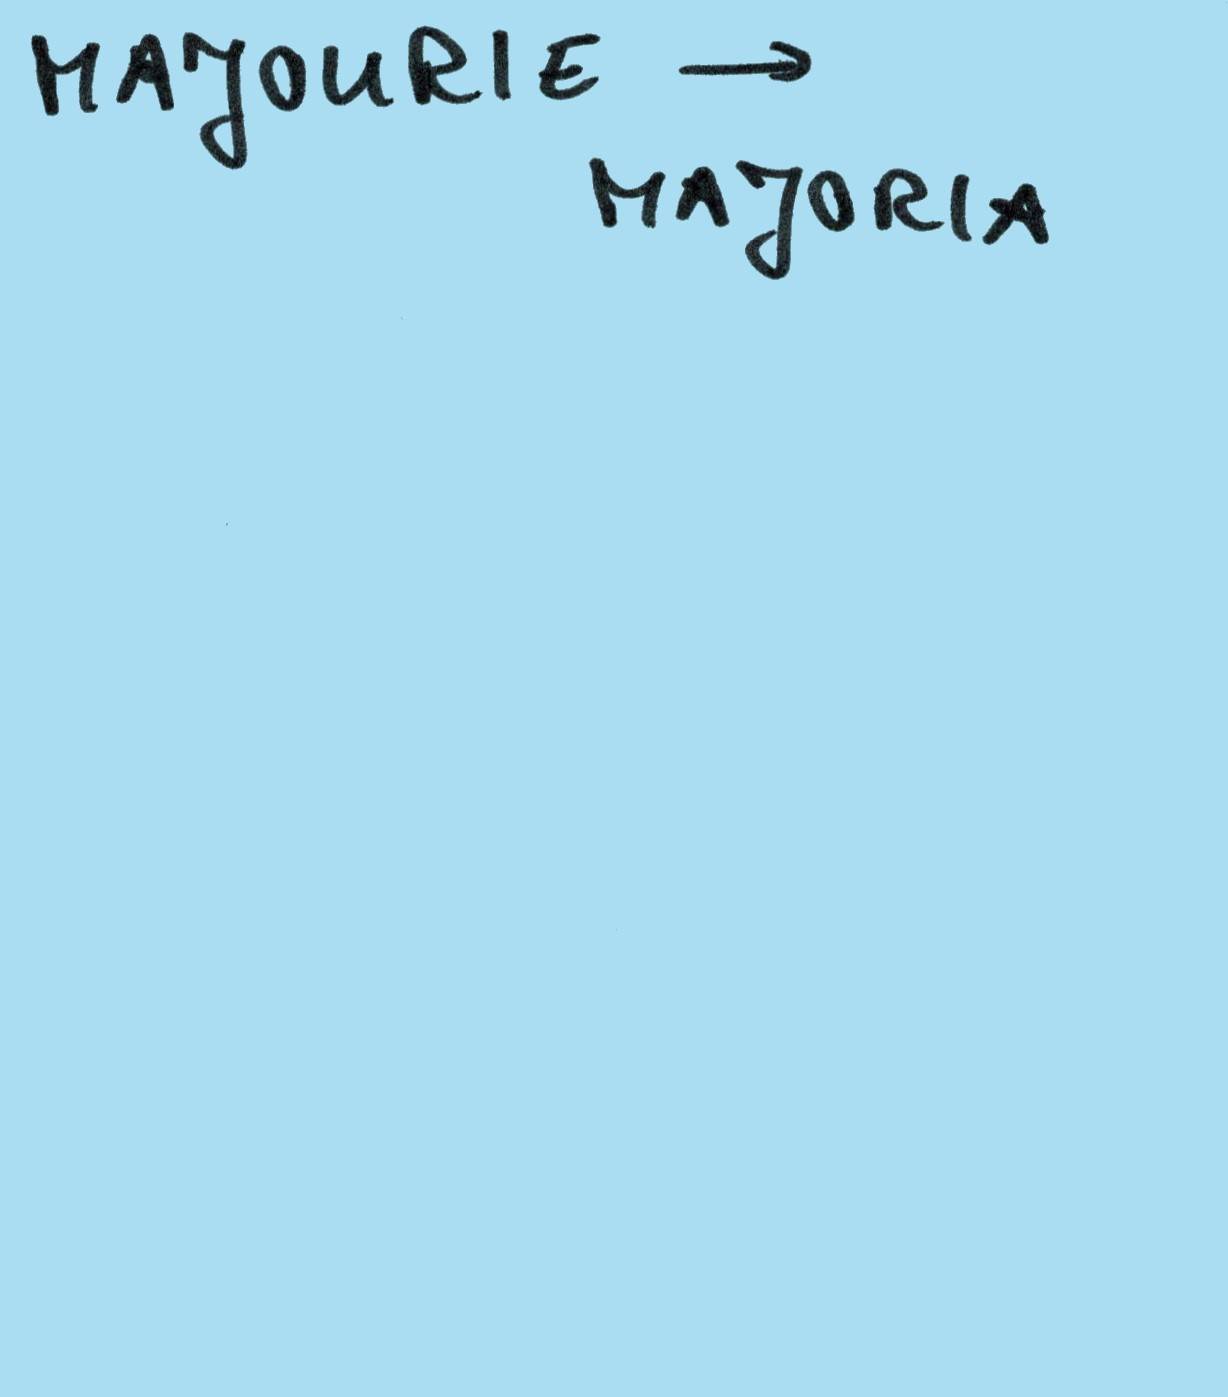 MAJOURIE →
MAJORIA